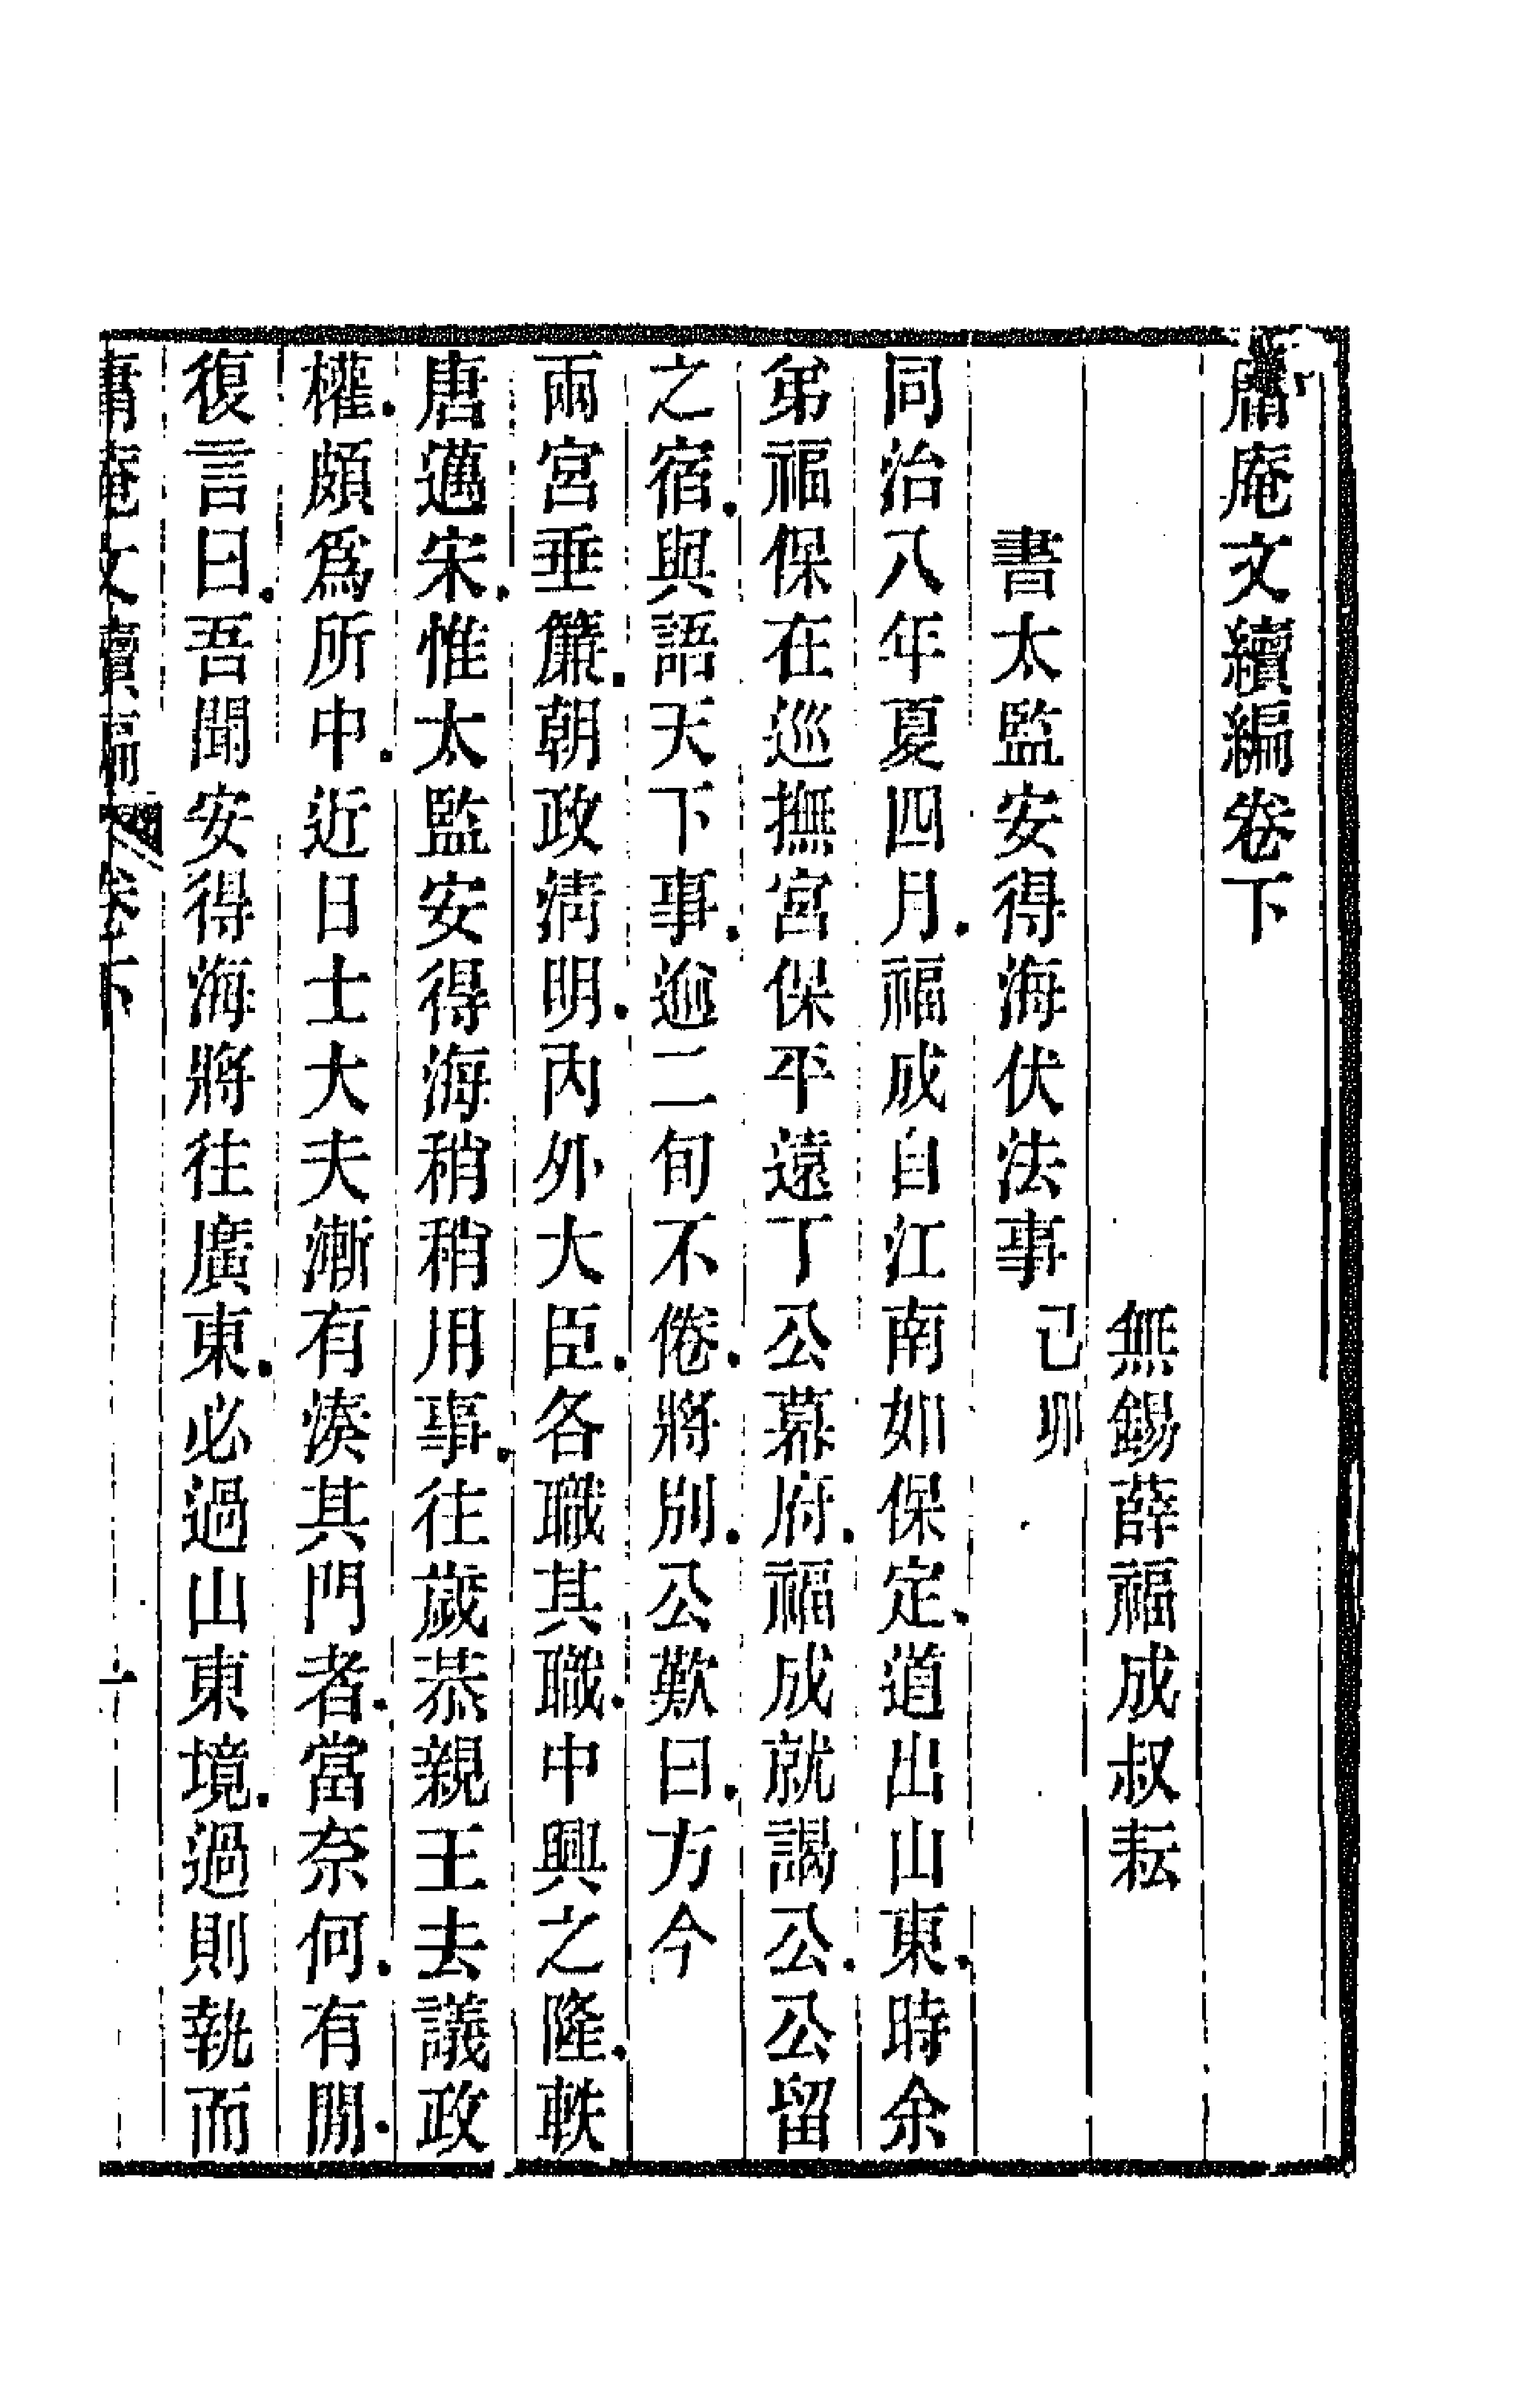 庸庵文續編卷下
無錫薛福成叔耘
書太監安得海伏法事己卯
同治八年夏四月.福成自江南如保定.道出山東.時余
弟福保在巡撫宮保平遠丁公幕府.福成就謁公.公留
之宿.與語天下事.逾二旬不倦.將別.公歎曰.方今
兩宮垂簾.朝政清明.內外大臣.各職其職.中興之隆.軼
唐邁宋.惟太監安得海稍稍用事.往歲恭親王去議政
權.頗爲所中.近日士大夫漸有湊其門者.當奈何.有閒.
復言曰.吾聞安得海將往廣東.必過山東境.過則執而
庸庵文續編 卷下 一